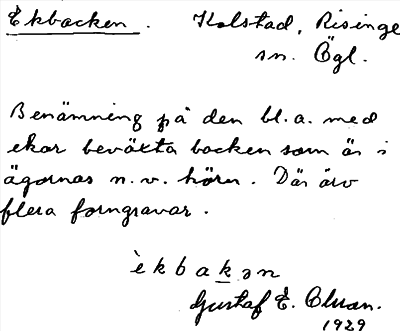 Ekbacken. Kolstad, Risinge
sn. Ögl.
Benämning på den bl.a. med
ekar beväxta backen som är i
ägornas n.v. hörn. Där äro
flera forngravar.
èkbakən
Gustaf E.
1929